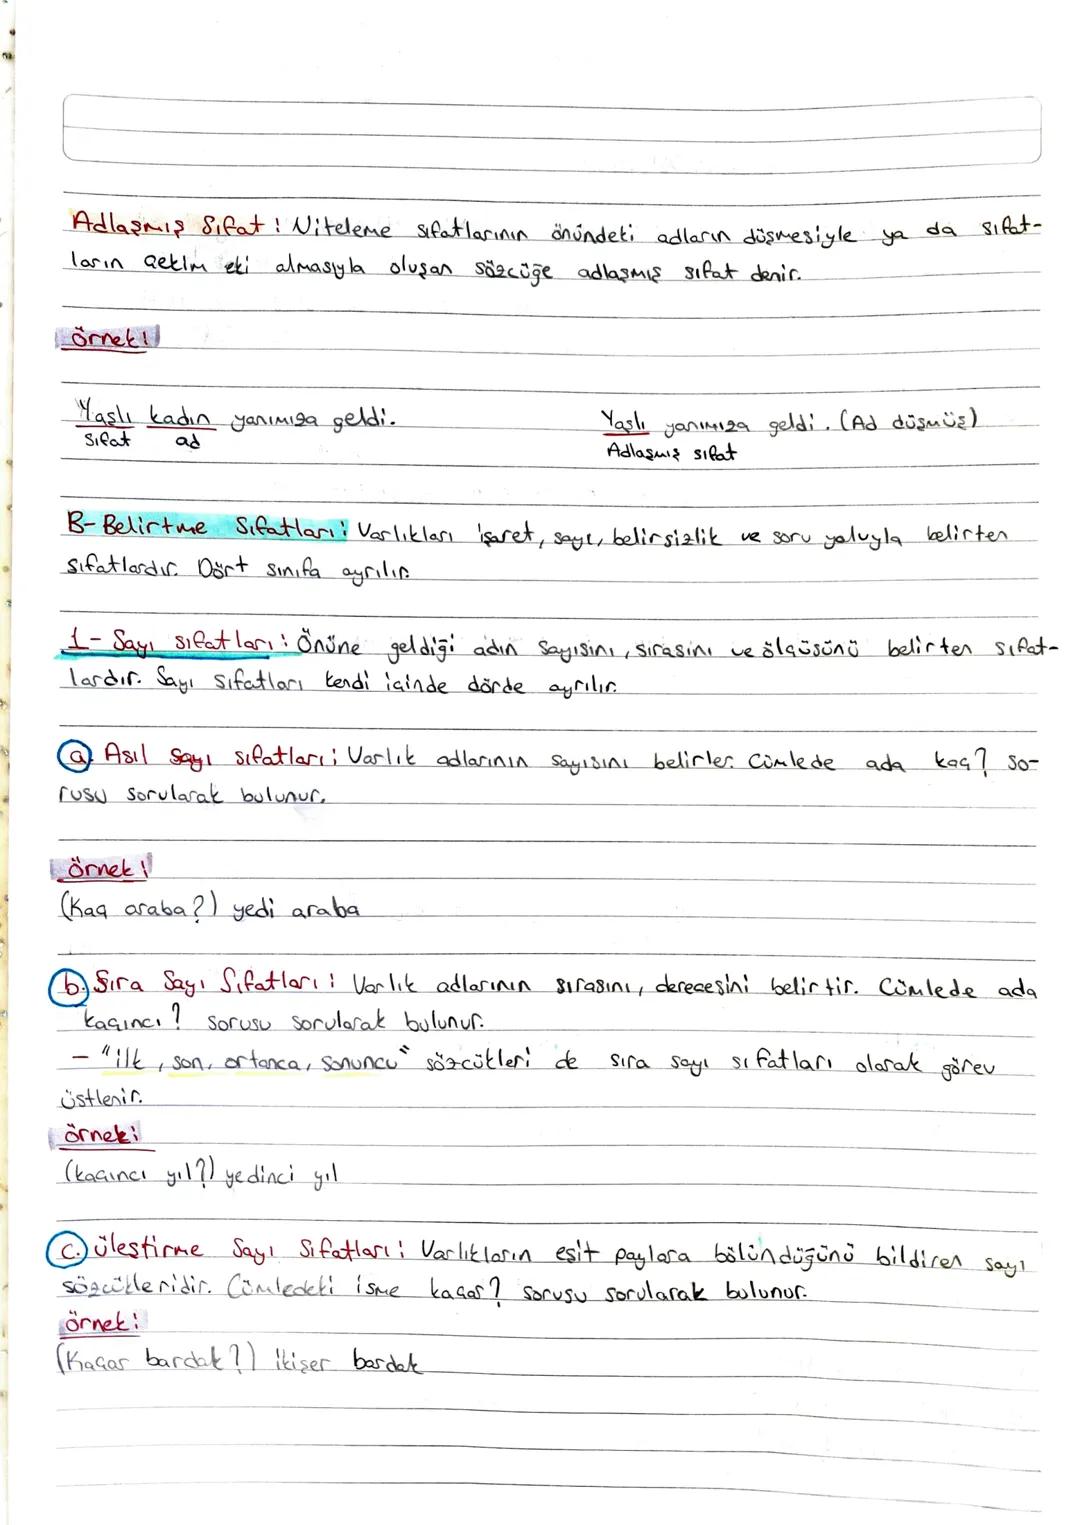 Adlaşmış Sıfat: Niteleme sıfatlarının önündeki adların düşmesiyle ya da sıfat-
ların çekim eki almasıyla oluşan sözcüğe adlaşmış sıfat denir.
örnek:
Yaşlı kadın yanımıza geldi. Yaşlı yanımıza geldi. (Ad düşmüş)
sıfat ad Adlaşmış sıfat
B- Belirtme Sıfatları: Varlıkları işaret, sayı, belirsizlik ve soru yoluyla belirten
sıfatlardır. Dört sınıfa ayrılır.
1- Sayı sıfatları: Önüne geldiği adın sayısını, sırasını ve ölçüsünü belirten sıfat-
lardır. Sayı sıfatları kendi içinde dörde ayrılır.
a. Asıl sayı sıfatları: Varlık adlarının sayısını belirler. Cümlede ada kaç? so-
rusu sorularak bulunur.
örnek:
(Kaç araba?) yedi araba
b. Sıra Sayı Sıfatları: Varlık adlarının sırasını, derecesini belirtir. Cümlede ada
kaçıncı? sorusu sorularak bulunur.
- "ilk, son, ortanca, sonuncu" sözcükleri de sıra sayı sıfatları olarak görev
üstlenir.
örnek:
(kaçıncı yıl?) yedinci yıl
c. Üleştirme Sayı Sıfatları: Varlıkların eşit paylara bölündüğünü bildiren sayı
sözcükleridir. Cümledeki isme kaçar? sorusu sorularak bulunur.
örnek:
(Kaçar bardak?) ikişer bardak